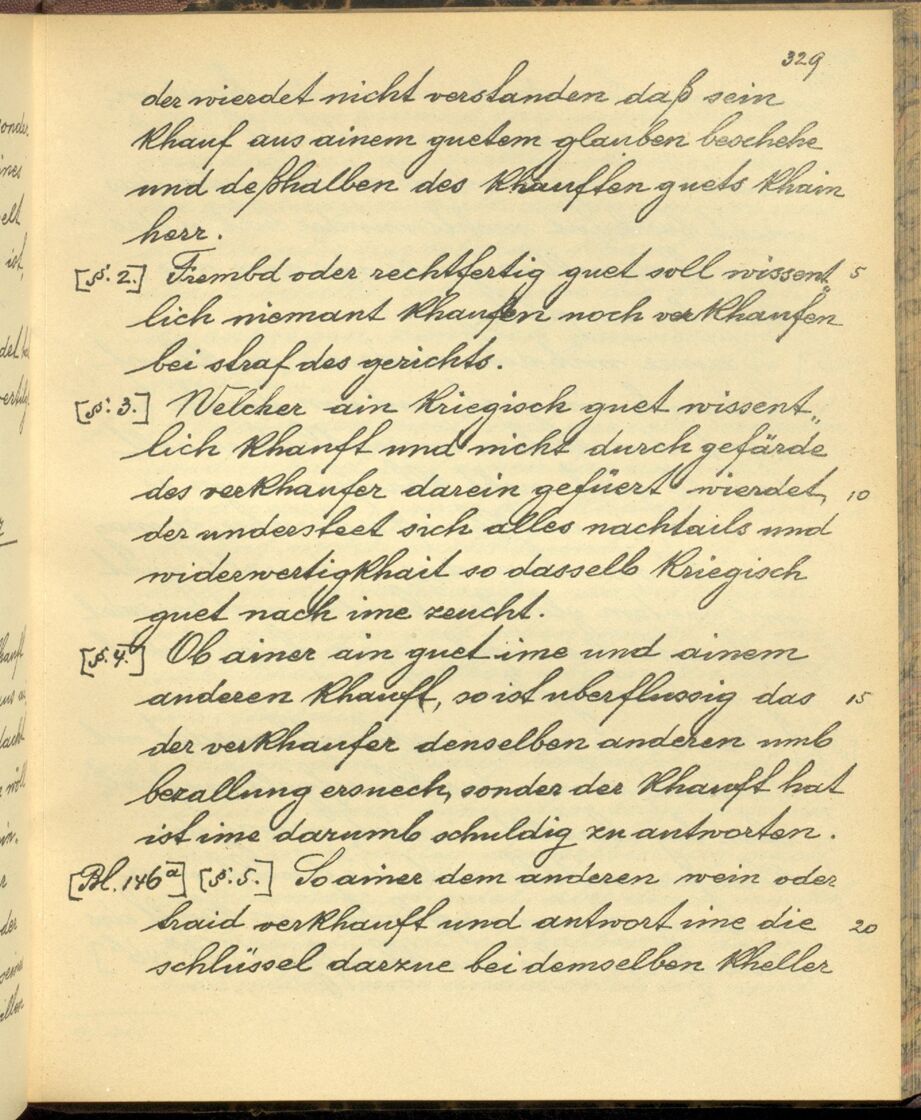 329
der wierdet nicht verstanden daß sein
khauf aus ainem guetem glauben beschehe
und deßhalben des khauften guets khain
herr.
[§. 2.] Frembd oder rechtfertig guet soll wissent„ 5
lich niemant khaufen noch verkhaufen
bei straf des gerichts.
[§. 3.] Welcher ain kriegisch guet wissent„
lich khauft und nicht durch gefärde
des verkhaufer darein gefüert wierdet, 10
der understeet sich alles nachtails und
widerwertigkhait so dasselb kriegisch
guet nach ime zeucht.
[§. 4.] Ob ainer ain guet ime und ainem
anderen khauft, so ist uberflussig das 15
der verkhaufer denselben anderen umb
bezallung ersuech, sonder der khauft hat
ist ime darumb schuldig zu antworten.
[Bl. 146a] [§. 5.] So ainer dem anderen wein oder
traid verkhauft und antwort ime die 20
schlüssel darzue bei demselben kheller